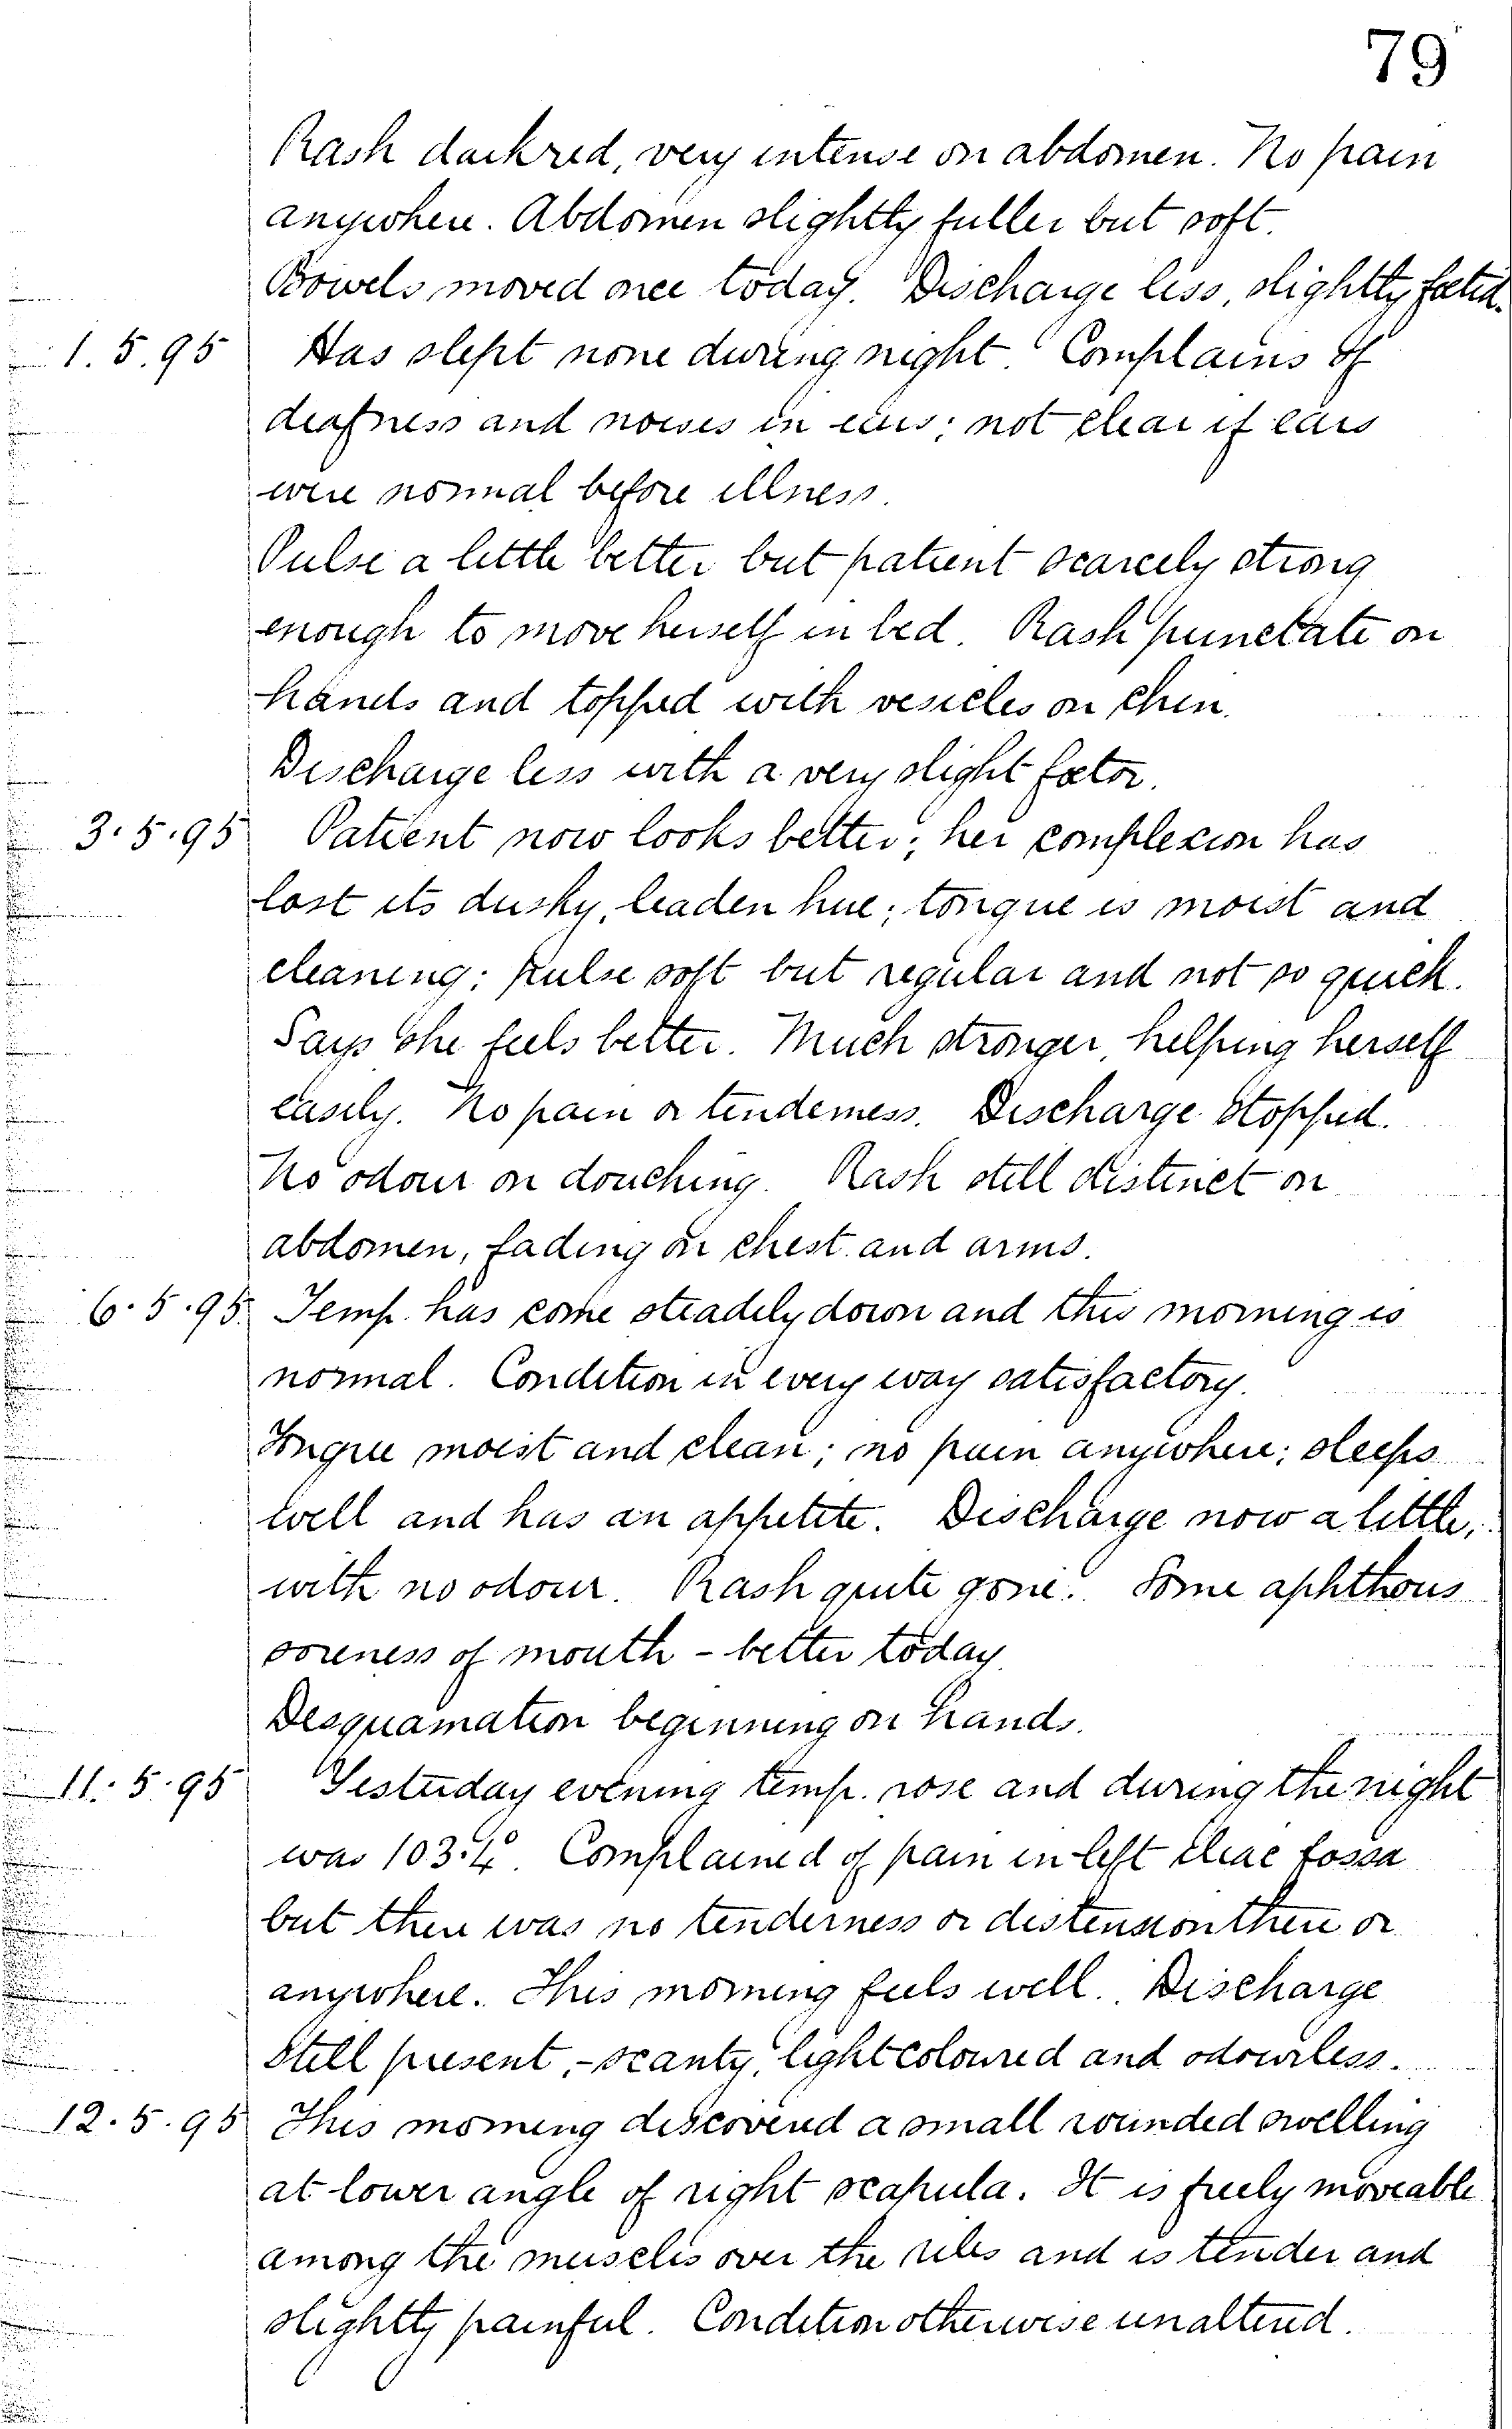 79
Rash dark red, very intense on abdomen. No pain
anywhere. Abdomen slightly fuller but soft.
Bowels moved once today. Discharge less, slightly foetid.
1.5.95 Has slept none during night. Complains of
deafness and noises in ears; not clear if ears
were normal before illness.
Pulse a little better but patient scarcely strong
enough to move herself in bed. Rash punctate on
hands and topped with vesicles on chin.
Discharge less with a very slight foetor.
3.5.95 Patient now looks better; her complexion has
lost its dusky, leaden hue; tongue is moist and
cleaning; pulse soft but regular and not so quick.
Says she feels better. Much stronger, helping herself
easily. No pain or tenderness. Discharge stopped.
No odour on douching. Rash still distinct on
abdomen, fading on chest and arms.
6.5.95. Temp. has come steadily down and this morning is
normal. Condition in every way satisfactory.
Tongue moist and clean; no pain anywhere; sleeps
well and has an appetite. Discharge now a little,
with no odour. Rash quite gone. Some aphthous
soreness of mouth - better today
Desquamation beginning on hands.
11.5.95 Yesterday evening temp. rose and during the night
was 103.4°. Complained of pain in left iliac fossa
but there was no tenderness or distension there or
anywhere. This morning feels well. Discharge
still present, - scanty, light coloured and odourless.
12.5.95 This morning discovered a small rounded swelling
at lower angle of right scapula. It is freely moveable
among the muscles over the ribs and is tender and
slightly painful. Condition otherwise unaltered.